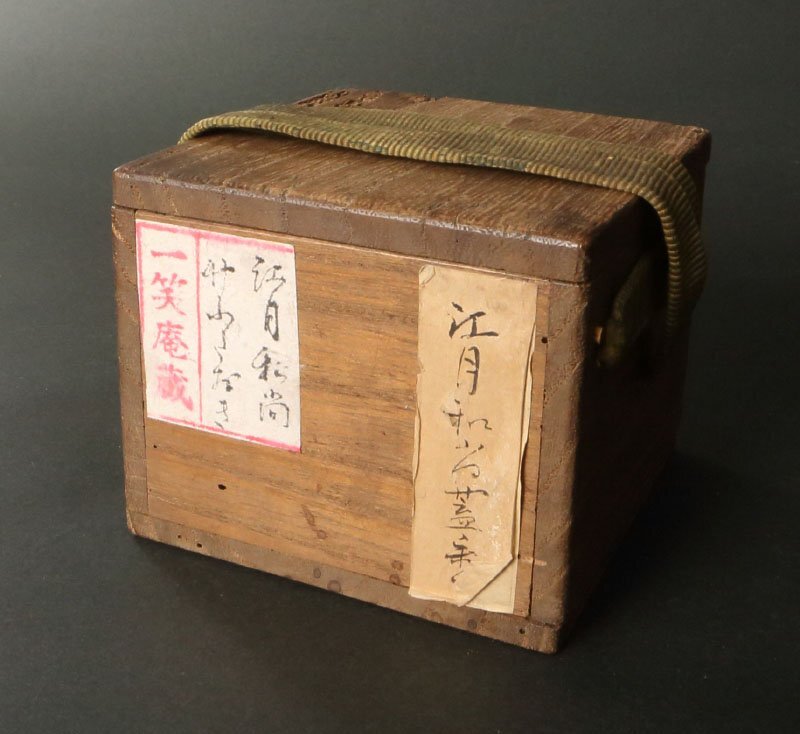 江月和尚蓋
江月和尚
竹ふたおき
一笑庵蔵